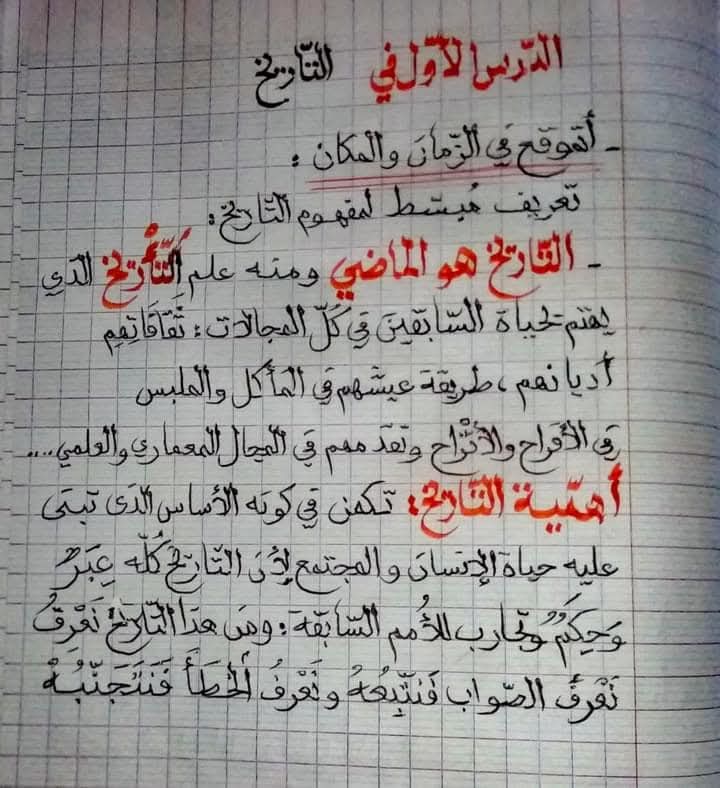 الدّرس الأوّل في التّاريخ
- أتموقع في الزّمان والمكان :
تعريف مُبسّط لمفهوم التّاريخ :
- التّاريخ هو الماضي ومنه علم التَّأْرِيخ الذي
يهتم لحياة السّابقين في كلّ المجالات : ثَقَافَاتِهِم
أديانهم ، طريقة عيشهم في المأكل والملبس
في الأفراح والأتْراح وتقدمهم في المجال المعماري والعلمي....
أهمّية التّاريخ : تكمن في كونه الأساس الذي تبنى
عليه حياة الإنسان والمجتمع لأن التّاريخ كُلّه عِبَرٌ
وَحِكَمٌ وتجارب للأُمم السّابقة : ومن هذا التّاريخ نَعْرِفُ
نَعْرِفُ الصّواب فَنتَّبِعُهُ ونَعْرفُ الخَطَأَ فَنَتَجَنَّبُهُ